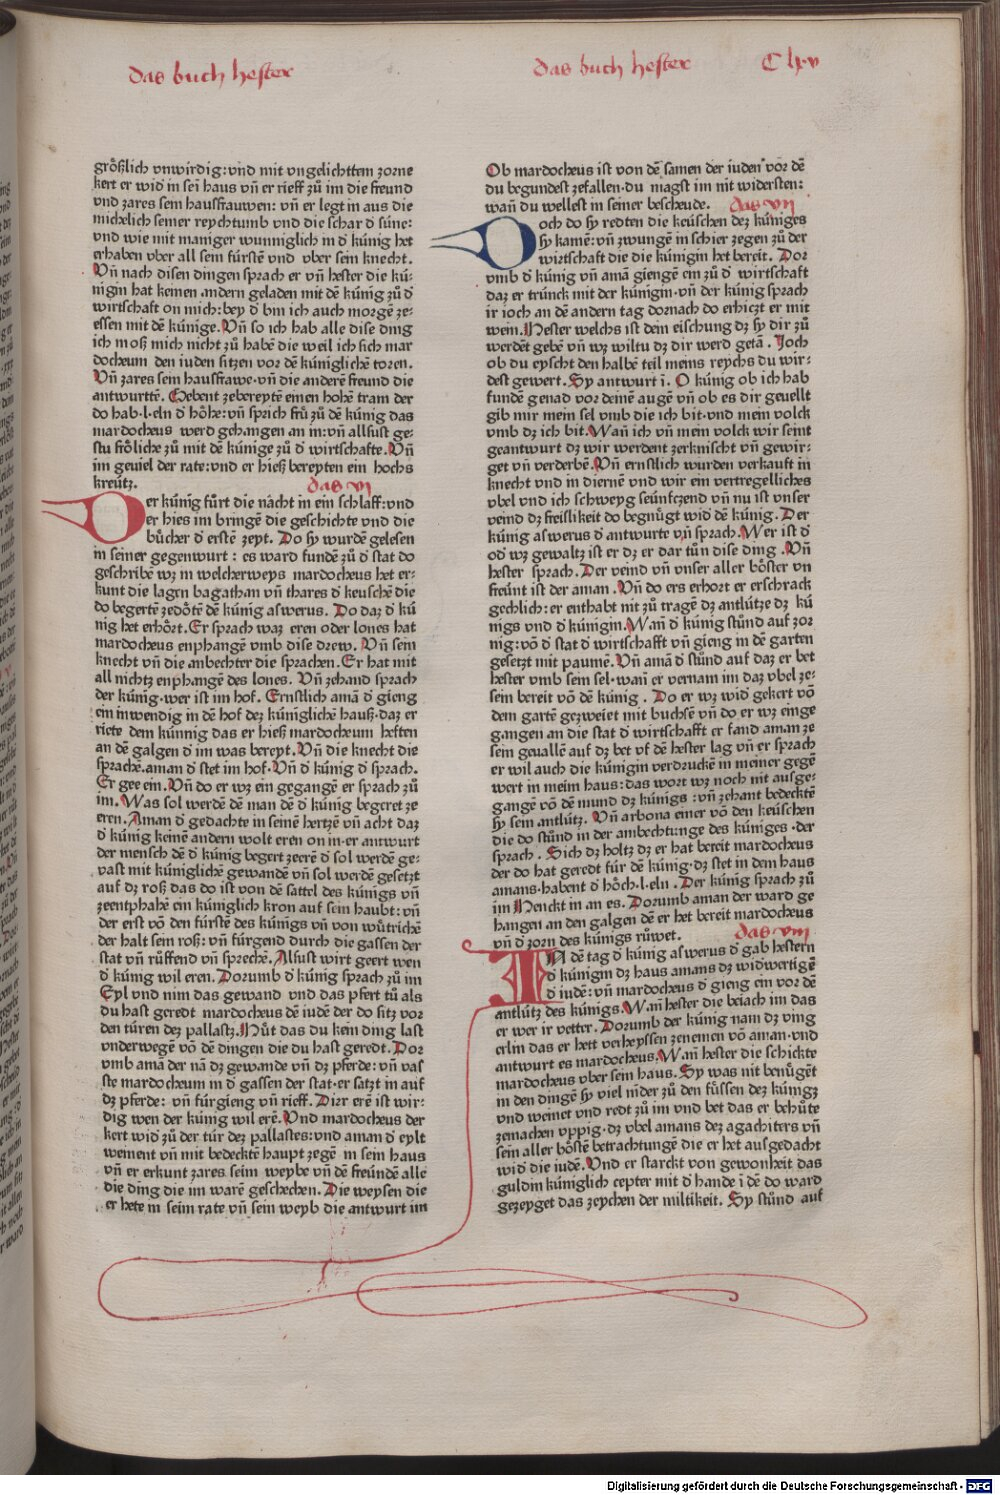 das buch hester
das buch hester C lxv
größlich vnwirdig: vnd mit vngelichttem zorne
kert er wid̄ in sei haus vñ er rieff zů im die freund
vnd zares sein hausfrauwen: vñ er legt in aus die
michelich seiner reychtumb vnd die schar d̄ süne:
vnd wie mit maniger wunniglich in d̄ künig het
erhaben vber all sein fürstē vnd vber sein knecht.
Vñ nach disen dingen sprach er vñ hester die kü-
nigin hat keinen andern geladen mit dē künig zů d̄
wirtschaft on mich: bey d̄ bin ich auch morgē ze-
essen mit dē künige. Vñ so ich hab alle dise ding
ich moß mich nicht zů habē die weil ich sich mar
docheum den iuden sitzen vor dē küniglichē toren.
Vñ zares sein hausfrawe·vñ die anderē freund die
antwurttē. Gebent zebereytē einen hohē tram der
do hab·l·eln d̄ höhe: vñ sprich frů zů dē künig das
mardocheus werd gehangen an in: vñ allsust ge-
stu fröliche zů mit dē künige zů d̄ wirtschafte. Vñ
im geuiel der rate: vnd er hieß bereyten ein hochs
kreütz. das vi
Der künig fürt die nacht in ein schlaff: vnd
er hies im bringē die geschichte vnd die
bücher d̄ erstē zeyt. Do sy wurdē gelesen
in seiner gegenwurt: es ward fundē zů d̄ stat do
geschribē wz in welcherweys mardocheus het er-
kunt die lagen bagathan vñ thares d̄ keuschē die
do begertē zedötē dē künig aswerus. Do daz d̄ kü
nig het erhört. Er sprach waz eren oder lones hat
mardocheus enphangē vmb dise drew. Vñ sein
knecht vñ die anbechter die sprachen. Er hat mit
all nichtz enphangē des lones. Vñ zehand sprach
der künig·wer ist im hof. Ernstlich amā d̄ gieng
ein inwendig in dē hof dez küniglichē hauß·daz er
riete dem künnig das er hieß mardocheum heften
an dē galgen d̄ im was bereyt. Vñ die knecht die
sprachē.aman d̄ stet im hof. Vñ d̄ künig d̄ sprach.
Er gee ein. Vñ do er wz ein gegangē er sprach zů
im. Was sol werdē dē man dē d̄ künig begeret ze
eren. Aman d̄ gedachte in seinē hertzē vñ acht daz
d̄ künig keinē andern wolt eren on in·er antwurt
der mensch dē d̄ künig begert zeerē d̄ sol werdē ge-
vast mit küniglichē gewandē vñ sol werdē gesetzt
auf dz roß das do ist von dē sattel des künigs vñ
zeentphahē ein küniglich kron auf sein haubt: vñ
der erst vō den fürstē des künigs vñ von wütrichē
der halt sein roß: vñ fürgend durch die gassen der
stat vñ růffend vñ sprechē. Alsust wirt geert wen
d̄ künig wil eren. Dorumb d̄ künig sprach zů im
Eyl vnd nim das gewand vnd das pfert tů als
du hast geredt mardocheus dē iudē der do sitz vor
den türen dez pallastz. Nüt das du kein ding last
vnderwegē vō dē dingen die du hast geredt. Dor
vmb amā der nā dz gewande vñ dz pferde: vñ vas
ste mardocheum in d̄ gassen der stat·er satzt in auf
dz pferde: vñ fürgieng vñ rieff. Dizr erē ist wir-
dig wen der künig wil erē. Vnd mardocheus der
kert wid̄ zů der tür dez pallastes: vnd aman d̄ eylt
weinent vñ mit bedecktē haupt zegē in sein haus
vñ er erkunt zares seim weybe vñ dē freündē alle
die ding die im warē geschechen. Die weysen die
er hete in seim rate vñ sein weyb die antwurt im
Ob mardocheus ist von dē samen der iuden vor dē
du begundest zefallen·du magst im nit widersten:
wañ du wellest in seiner bescheude. das vii
Doch do sy redten die keüschen dez küniges
sy kamē: vñ zwungē in schier zegen zů der
wirtschaft die die künigin het bereit. Dor
vmb d̄ künig vñ amā giengē ein zů d̄ wirtschaft
daz er trünck mit der künigin·vñ der künig sprach
ir ioch an dē andern tag dornach do erhiczt er mit
wein. Hester welchs ist dein eischung dz sy dir zů
werdēt gebē vñ wz wiltu dz dir werd getā. Joch
ob du eyschst den halbē teil meins reychs du wir-
dest gewert. Sy antwurt ī. O künig ob ich hab
fundē genad vor deinē augē vñ ob es dir geuellt
gib mir mein sel vmb die ich bit·vnd mein volck
vmb dz ich bit. Wañ ich vñ mein volck wir seint
geantwurt dz wir werdent zerknischt vñ gewir-
get vñ verderbē. Vñ ernstlich wurden verkauft in
knecht vnd in diernē vnd wir ein vertregelliches
vbel vnd ich schweyg seünfczend vñ nu ist vnser
veind dz freislikeit do begnügt wid̄ dē künig. Der
künig aswerus d̄ antwurte vñ sprach. Wer ist d̄
od̄ wz gewaltz ist er dz er dar tün dise ding. Vñ
hester sprach. Der veind vñ vnser aller böster vn
freünt ist der aman. Vñ do ers erhort er erschrack
gechlich: er enthabt nit zů tragē dz antlütze dz kü
nigs vnd d̄ künigin. Wañ d̄ künig stünd auf zor
nig: vō d̄ stat d̄ wirtschafft vñ gieng in dē garten
gesetzt mit paumē. Vñ amā d̄ stünd auf daz er bet
hester vmb sein sel·wañ er vernam im daz vbel ze-
sein bereit vō dē künig. Do er wz wid̄ gekert vō
dem gartē gezweiet mit buchsē vñ do er wz einge
gangen an die stat d̄ wirtschafft er fand aman ze
sein geuallē auf dz bet vf dē hester lag vñ er sprach
er wil auch die künigin verdruckē in meiner gegē
wert in meim haus: das wort wz noch nit ausge-
gangē vō dē mund dz künigs: vñ zehant bedecktē
sy sein antlütz. Vñ arbona einer vō den keüschen
die do stünd in der anbechtunge des küniges·der
sprach. Sich dz holtz dz er hat bereit mardocheus
der do hat geredt für dē künig·dz stet in dem haus
amans·habent d̄ höch·l·eln. Der künig sprach zů
im Henckt in an es. Dorumb aman der ward ge
hangen an den galgen dē er het bereit mardocheus
vñ d̄ zorn des künigs růwet. das viii
IN dē tag d̄ künig aswerus d̄ gab hestern
d̄ künigin dz haus amans dz widwertigē
d̄ iudē: vñ mardocheus d̄ gieng ein vor dē
antlütz des künigs. Wañ hester die beiach im das
er wer ir vetter. Dorumb der künig nam dz ving
erlin das er hett verheyssen zenemen vō aman·vnd
antwurt es mardocheus. Wañ hester die schickte
mardocheus vber sein haus. Sy was nit benügēt
in den dingē sy viel nider zů den füssen dez künigz
vnd weinet vnd redt zů im vnd bet das er behüte
zemachen vppig·dz vbel amans dez agachiters vñ
sein aller böstē betrachtungē die er het ausgedacht
wid̄ die iudē. Vnd er starckt von gewonheit das
guldin küniglich cepter mit d̄ hande ī dē do ward
gezeyget das zeychen der miltikeit. Sy stünd auf
Digitalisierung gefördert durch die Deutsche Forschungsgemeinschaft - DFG